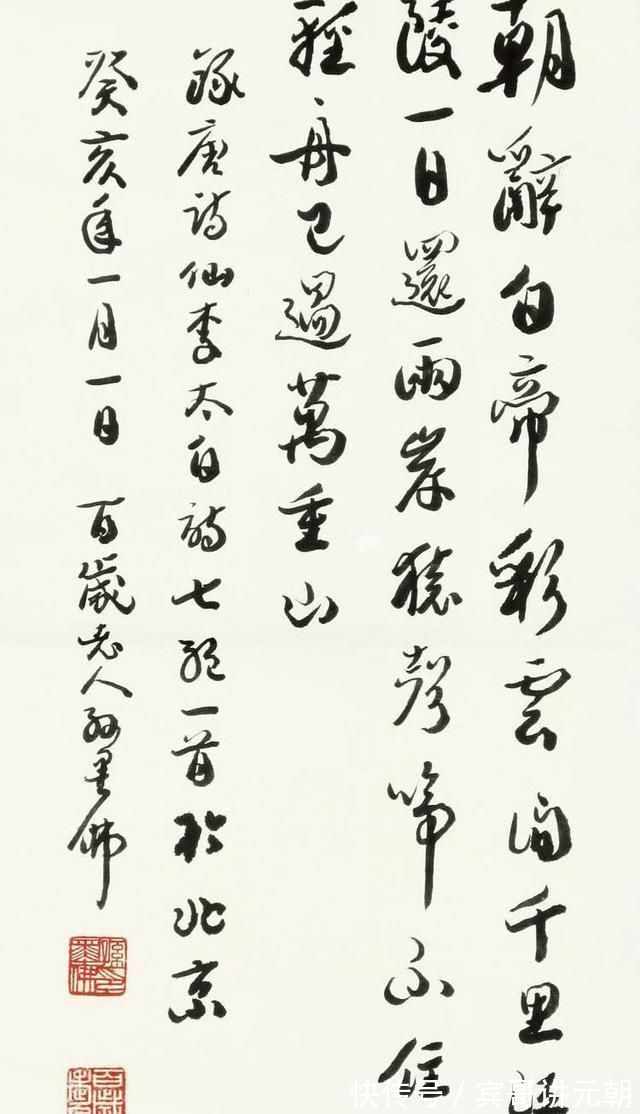 朝辭白帝彩雲間千里江
陵一日還兩岸猿聲啼不住
輕舟已過萬重山
錄唐詩仙李太白詩七絕一首於北京
癸亥年一月一日 百歲老人孫墨佛
孫墨佛印
快传号／宾哥讲元朝